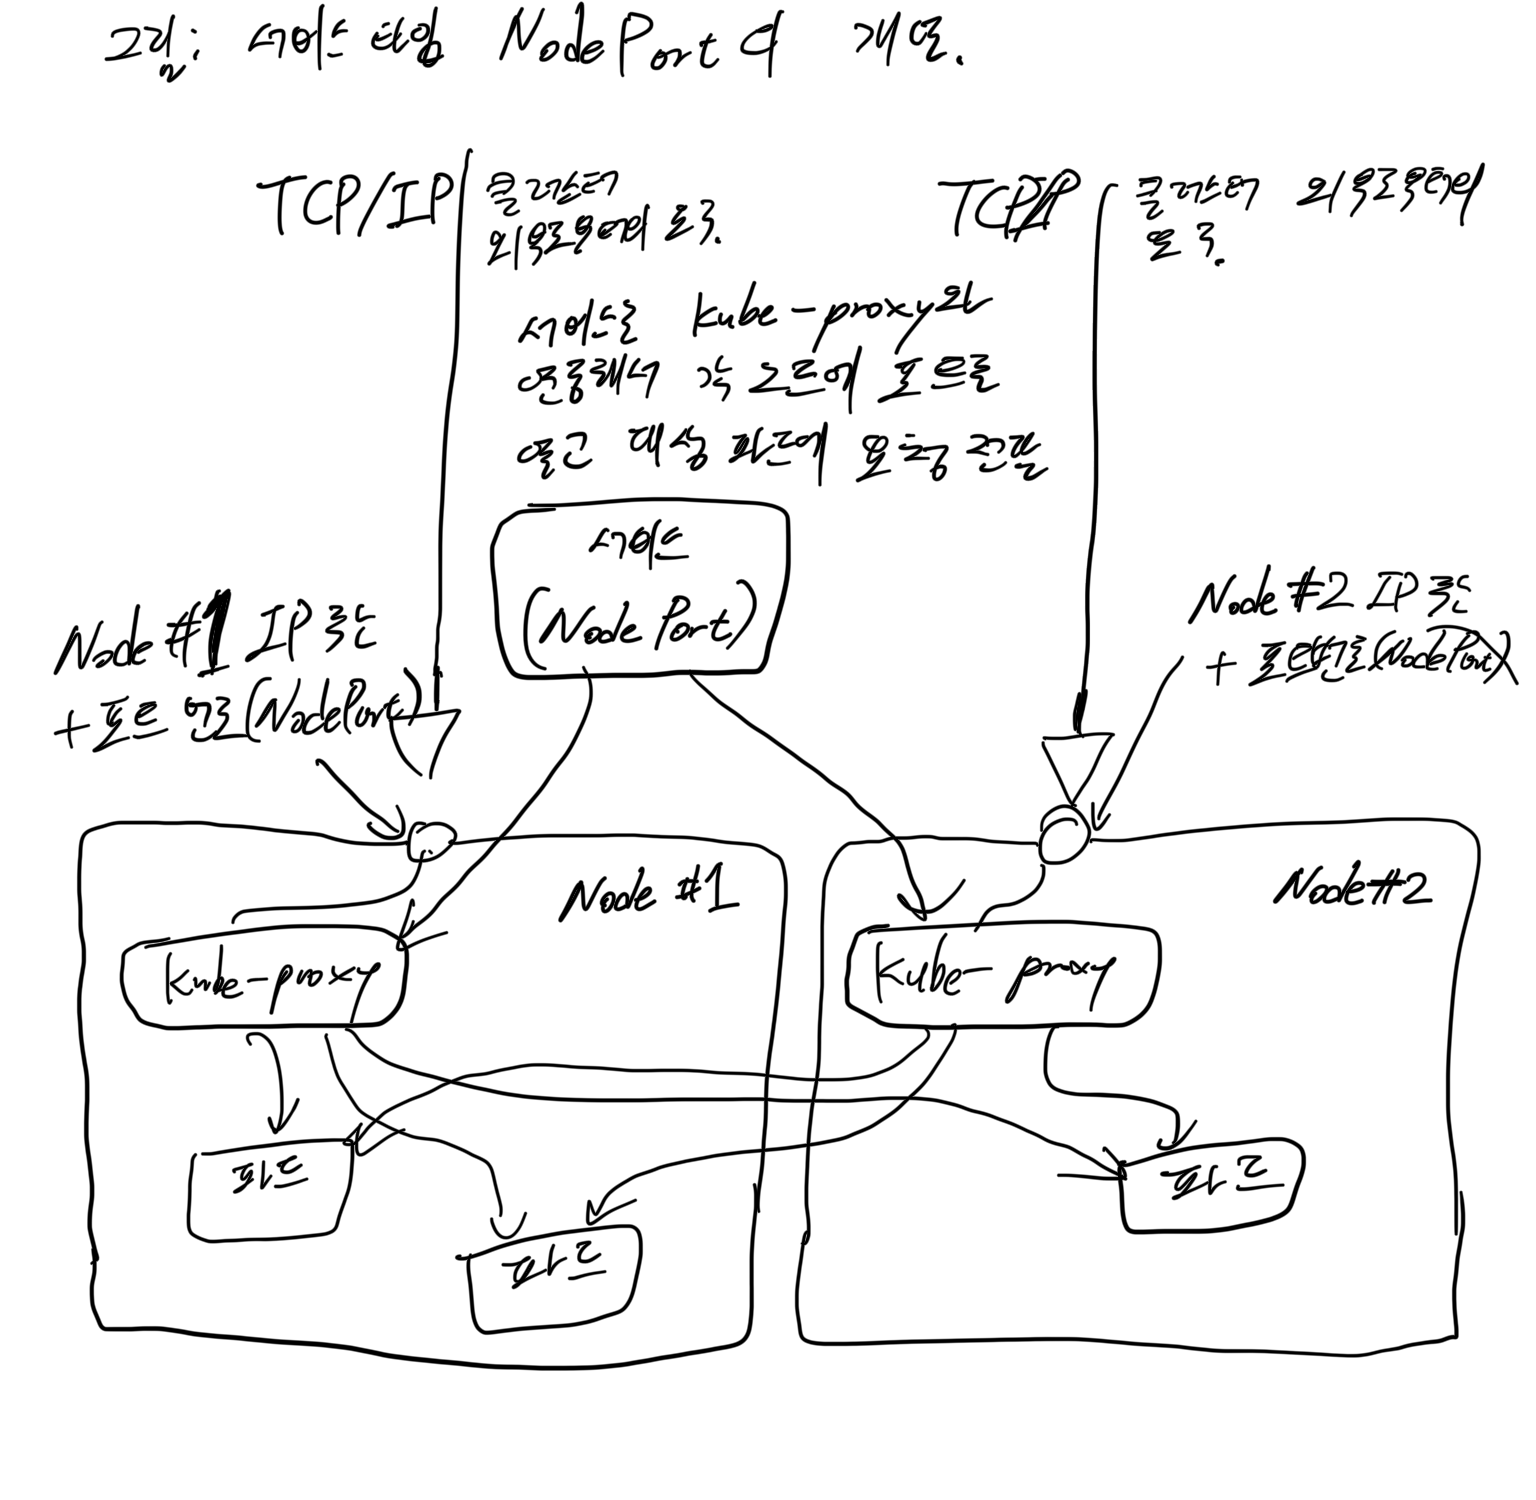 그림: 서비스 타입 NodePort의 개념.
TCP/IP
클러스터
외부로부터의
TCP/IP
클러스터 외부로부터의
서비스는 kube-proxy와
연동해서 각 노드에 포트를
열고 대상 파드에 요청 전달
서비스
(NodePort)
Node #1 IP 주소
+ 포트 번호(NodePort)
Node #2 IP 주소
+ 포트번호(NodePort)
Node #1
Node #2
kube-proxy
kube-proxy
파드
파드
파드